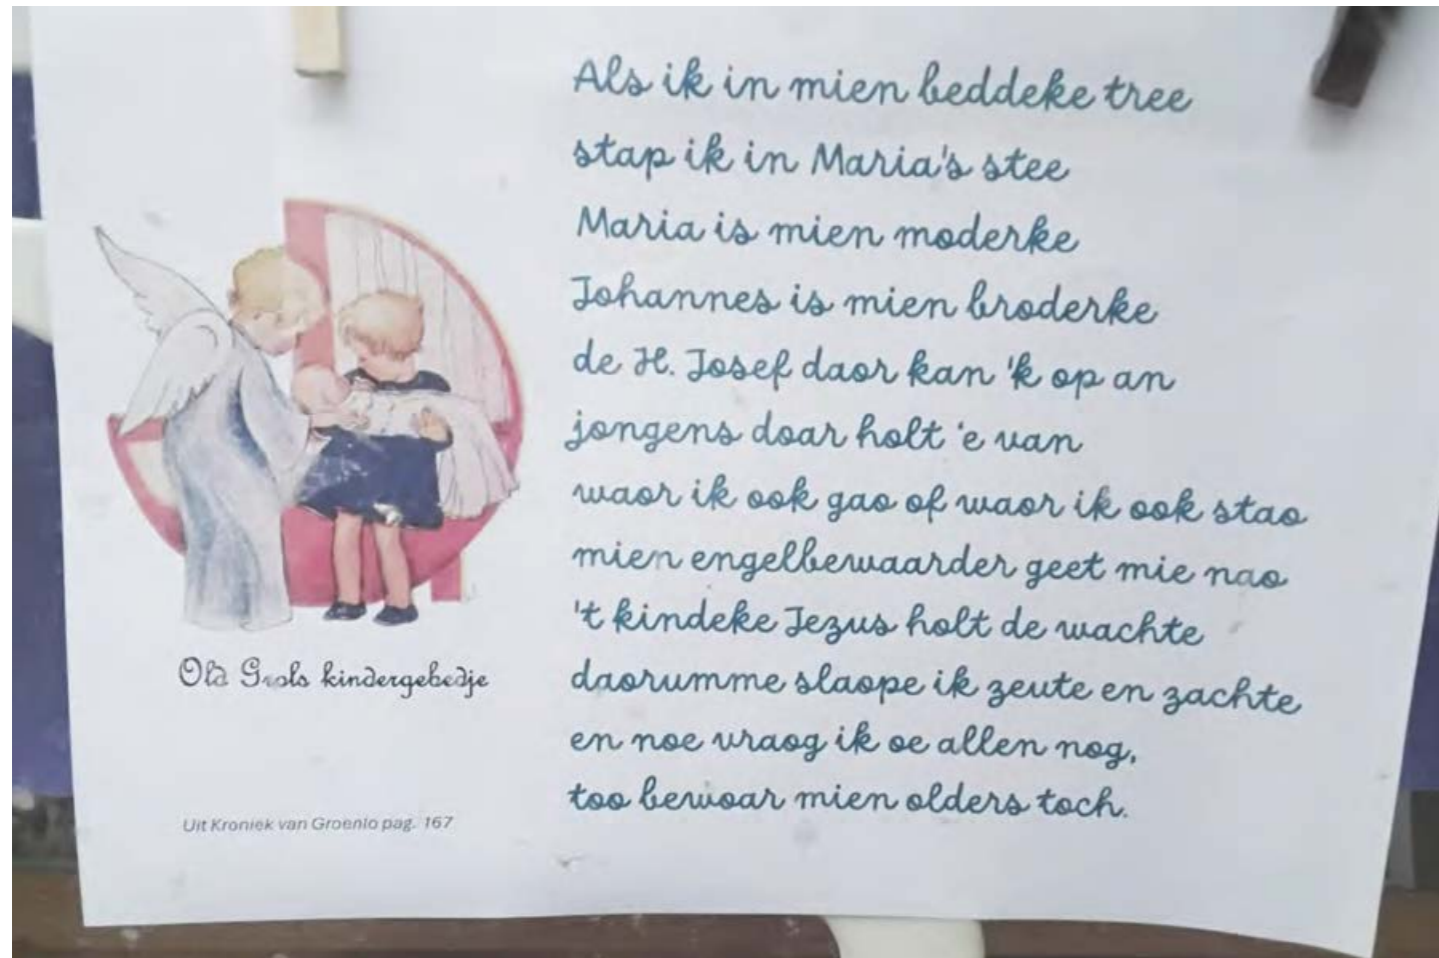 Als ik in mien beddeke tree
stap ik in Maria's stee
Maria is mien moderke
Johannes is mien broderke
de H. Josef daor kan 'k op an
jongens doar holt 'e van
waor ik ook gao of waor ik ook stao
mien engelbewaarder geet mie nao
't kindeke Jezus holt de wachte
daorumme slaope ik zeute en zachte
en noe vraog ik oe allen nog,
too bewoar mien olders toch.
Old Grols kindergebedje
Uit Kroniek van Groenlo pag. 167